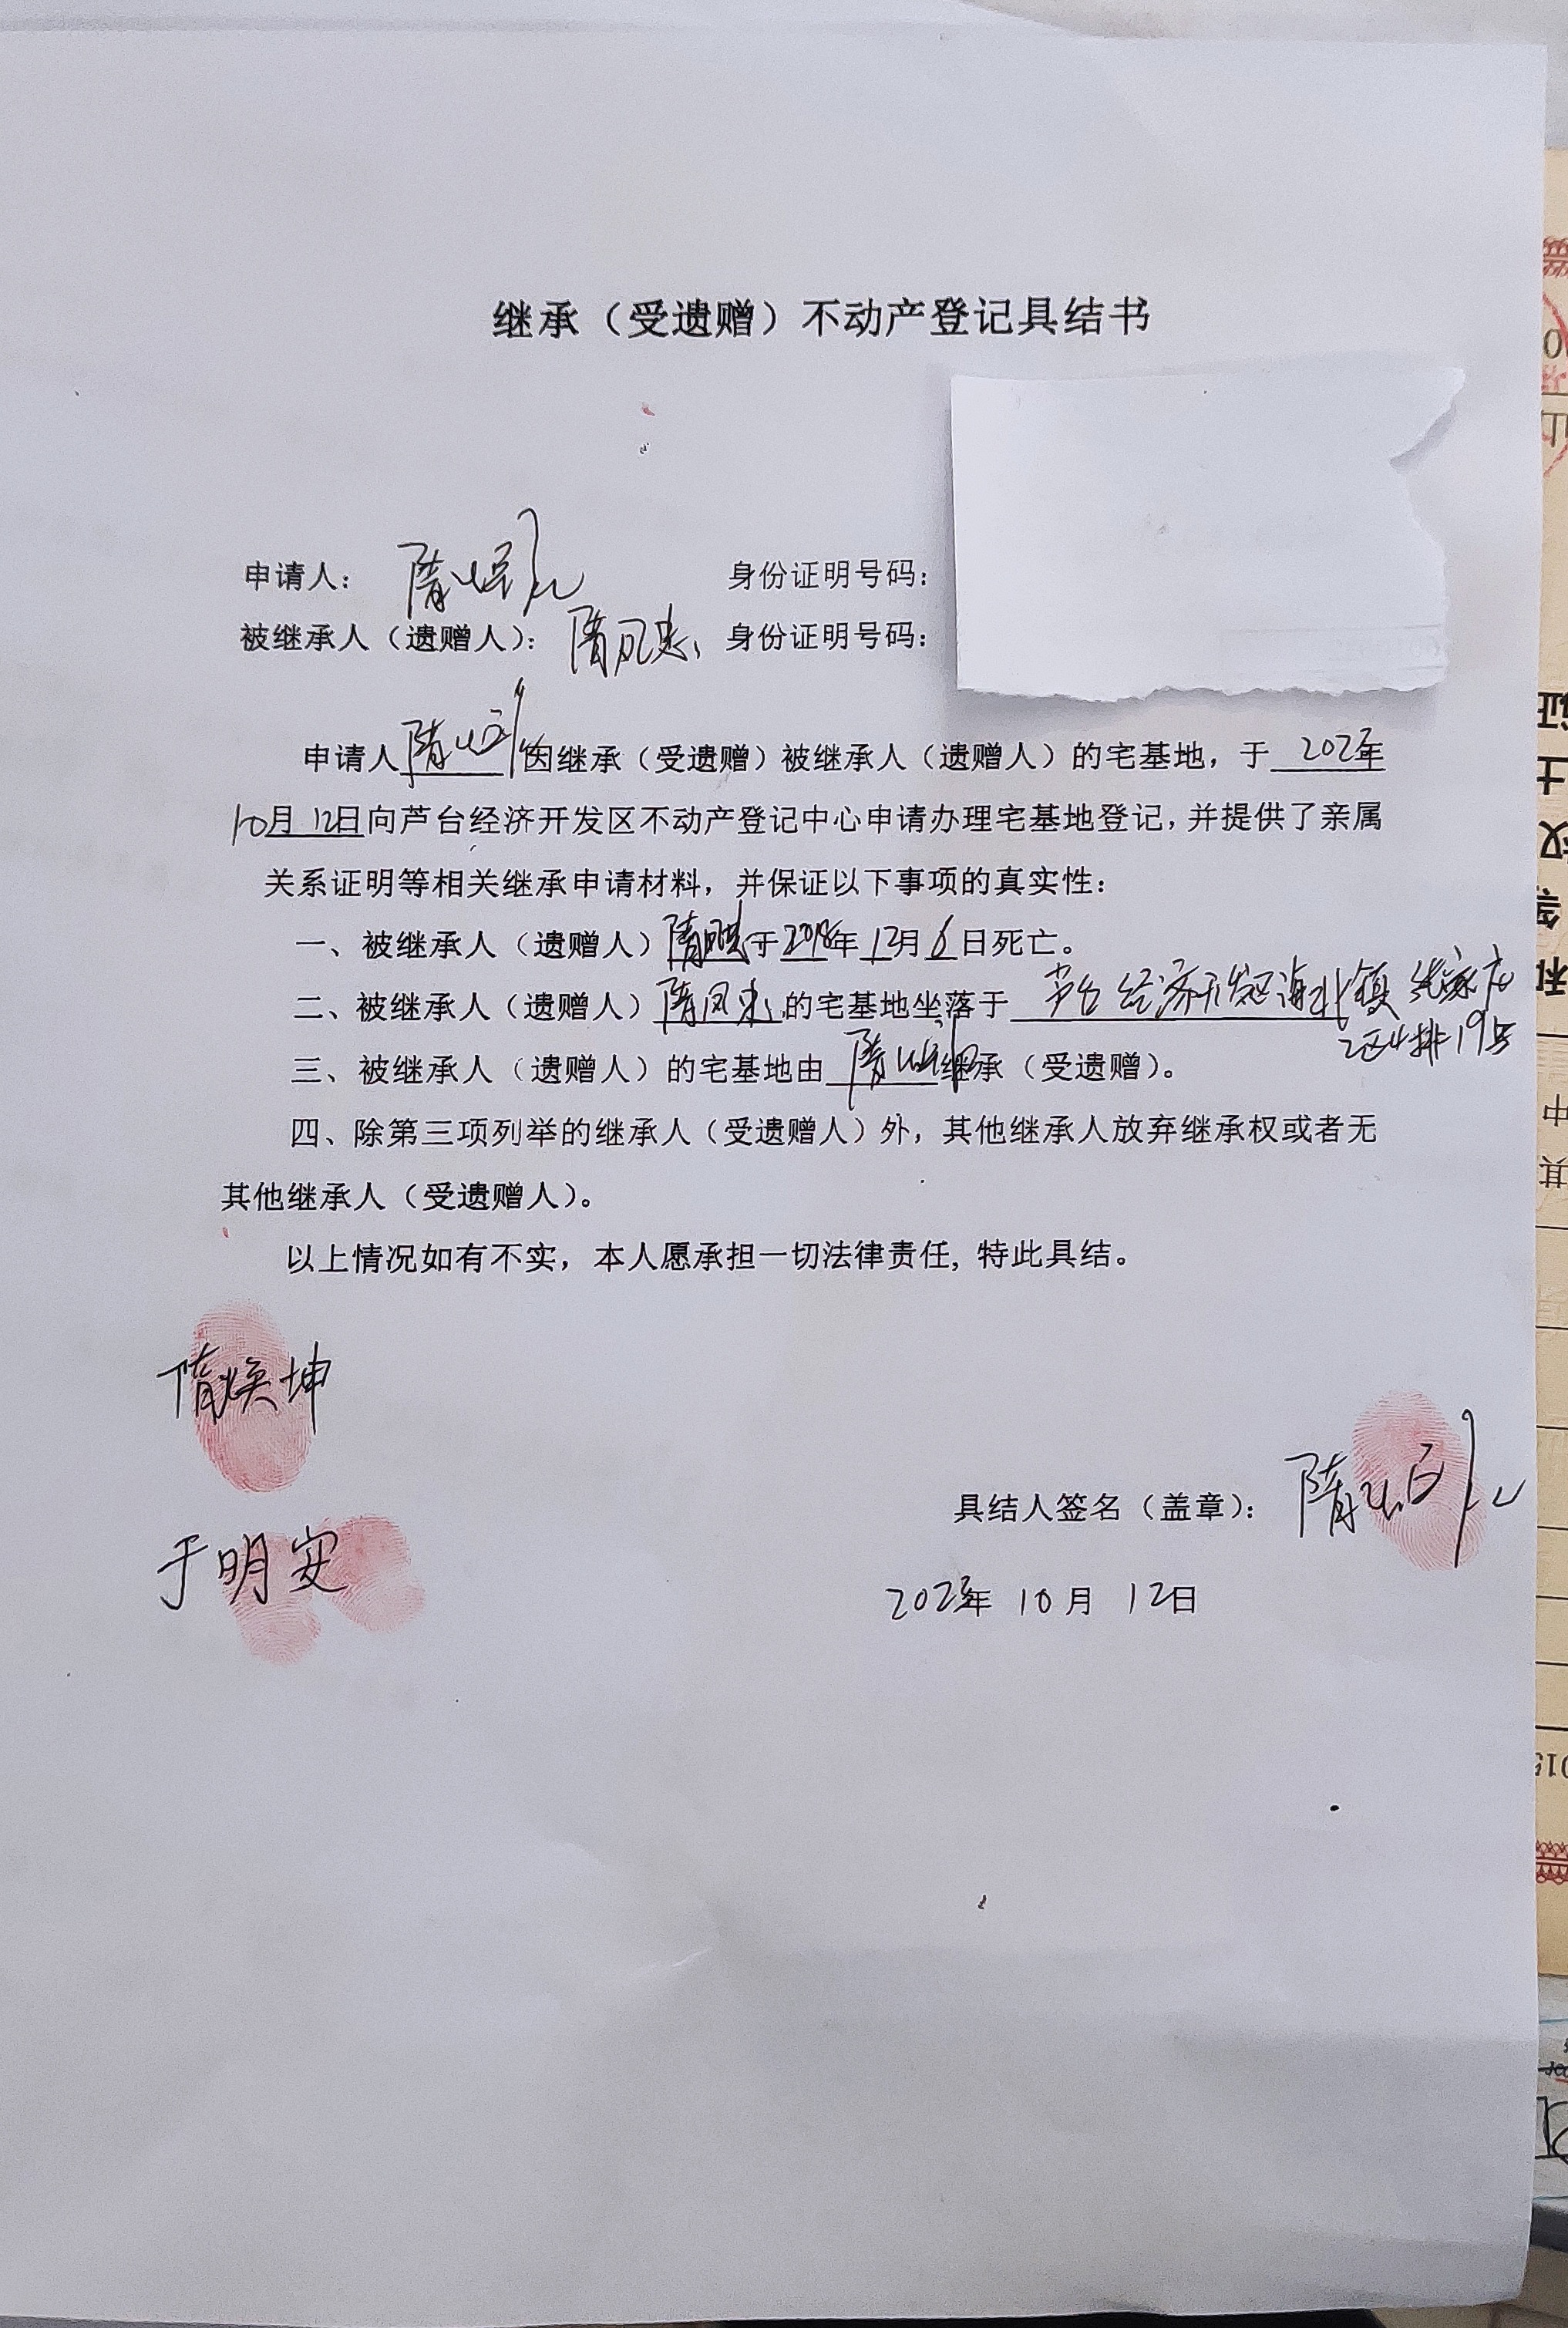 继承（受遗赠）不动产登记具结书
申请人： 隋 身份证明号码：
被继承人（遗赠人）： 隋凤忠 身份证明号码：
申请人 隋 因继承（受遗赠）被继承人（遗赠人）的宅基地，于 2023年
10月 12日向芦台经济开发区不动产登记中心申请办理宅基地登记，并提供了亲属
关系证明等相关继承申请材料，并保证以下事项的真实性：
一、被继承人（遗赠人）隋凤忠于2018年 12月 6 日死亡。
二、被继承人（遗赠人）隋凤忠 的宅基地坐落于 芦台经济开发区海北镇
区4排19号
三、被继承人（遗赠人）的宅基地由 隋 继承（受遗赠）。
四、除第三项列举的继承人（受遗赠人）外，其他继承人放弃继承权或者无
其他继承人（受遗赠人）。
以上情况如有不实，本人愿承担一切法律责任, 特此具结。
隋焕坤
于明安
具结人签名（盖章）： 隋
2023年 10月 12日